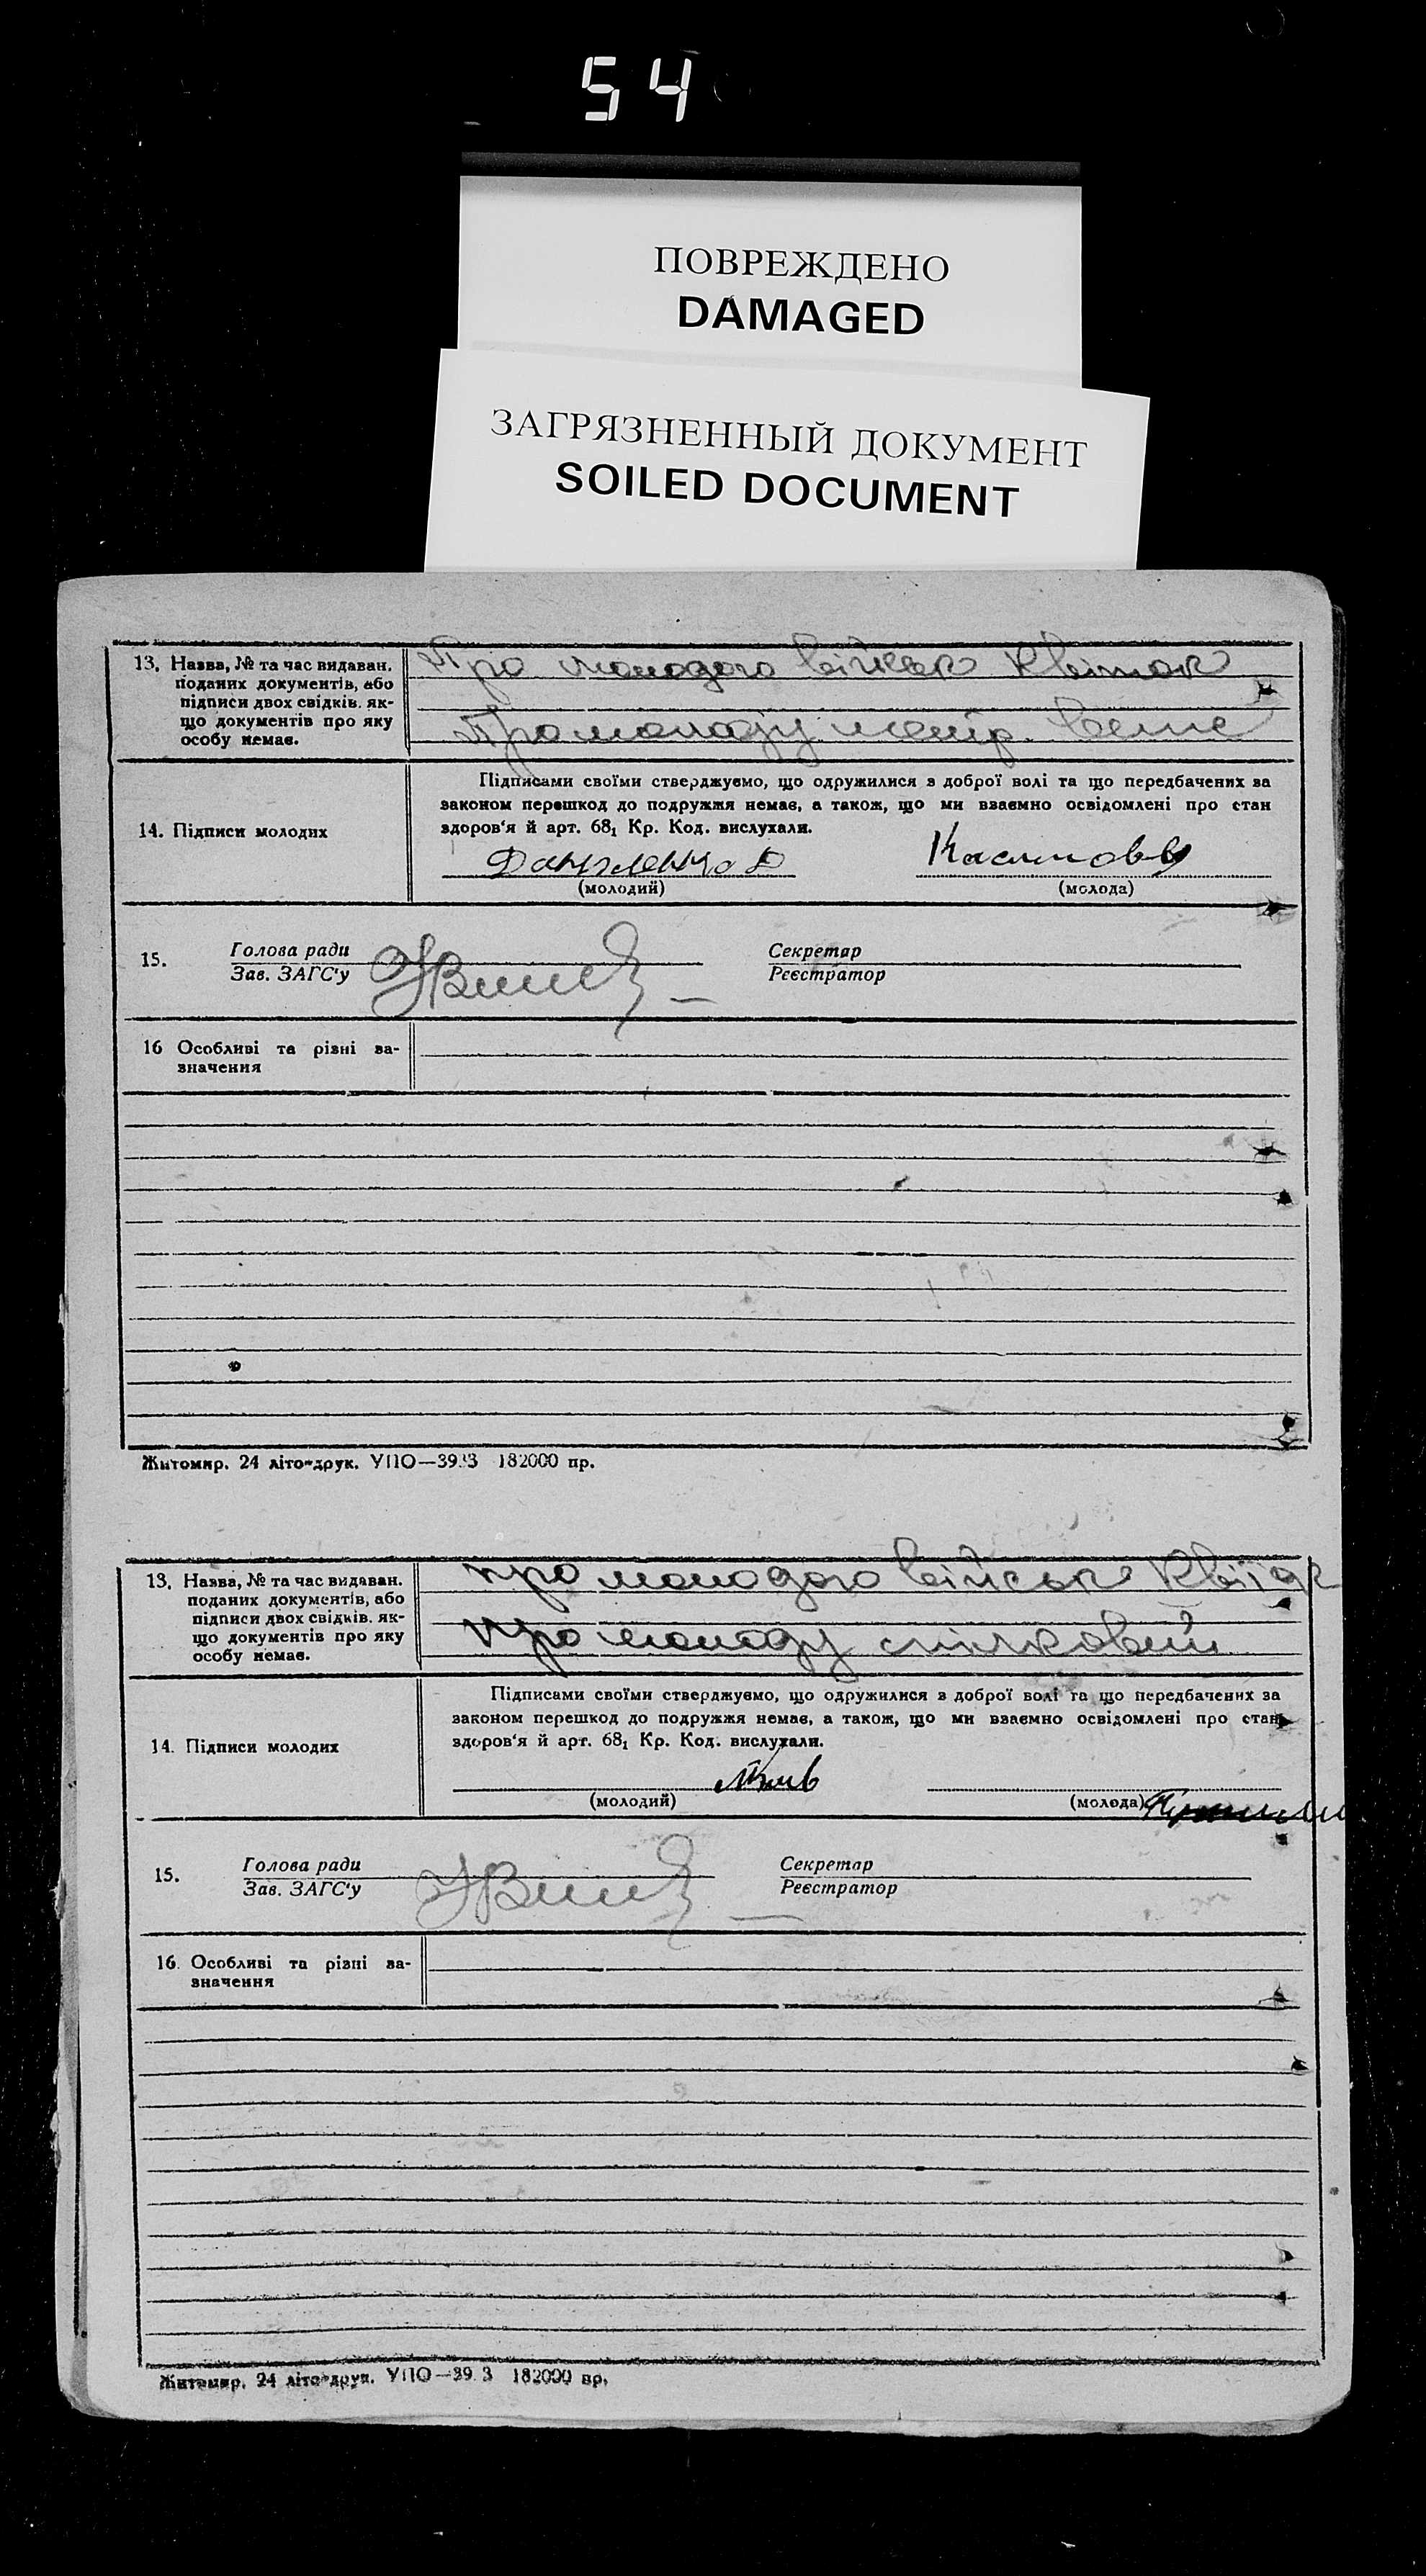 54
ПОВРЕЖДЕНО
DAMAGED
ЗАГРЯЗНЕННЫЙ ДОКУМЕНТ
SOILED DOCUMENT
13. Назва, № та час видаван.
поданих документів, або
підписи двох свідків. як-
що документів про яку
особу немає.
Про молодого військ квиток
Про молоду
14. Підписи молодих
Підписами своїми стверджуємо, що одружилися з доброї волі та що передбачених за
законом перешкод до подружжя немає, а також, що ми взаємно освідомлені про стан
здоров'я й арт. 68₁ Кр. Код. вислухали.
Даниленко
(молодий)
(молода)
15.
Голова ради
Зав. ЗАГС'у
Секретар
Реєстратор
16 Особливі та різні за-
значення
Житомир. 24 літо-друк. УПО—39.3 182000 пр.
13. Назва, № та час видаван.
поданих документів, або
підписи двох свідків. як-
що документів про яку
особу немає.
про молодого військ
про молоду
14. Підписи молодих
Підписами своїми стверджуємо, що одружилися з доброї волі та що передбачених за
законом перешкод до подружжя немає, а також, що ми взаємно освідомлені про стан
здоров'я й арт. 68₁ Кр. Код. вислухали.
(молодий)
(молода)
15.
Голова ради
Зав. ЗАГС'у
Секретар
Реєстратор
16. Особливі та різні за-
значення
Житомир. 24 літо-друк. УПО—39.3 182000 пр.